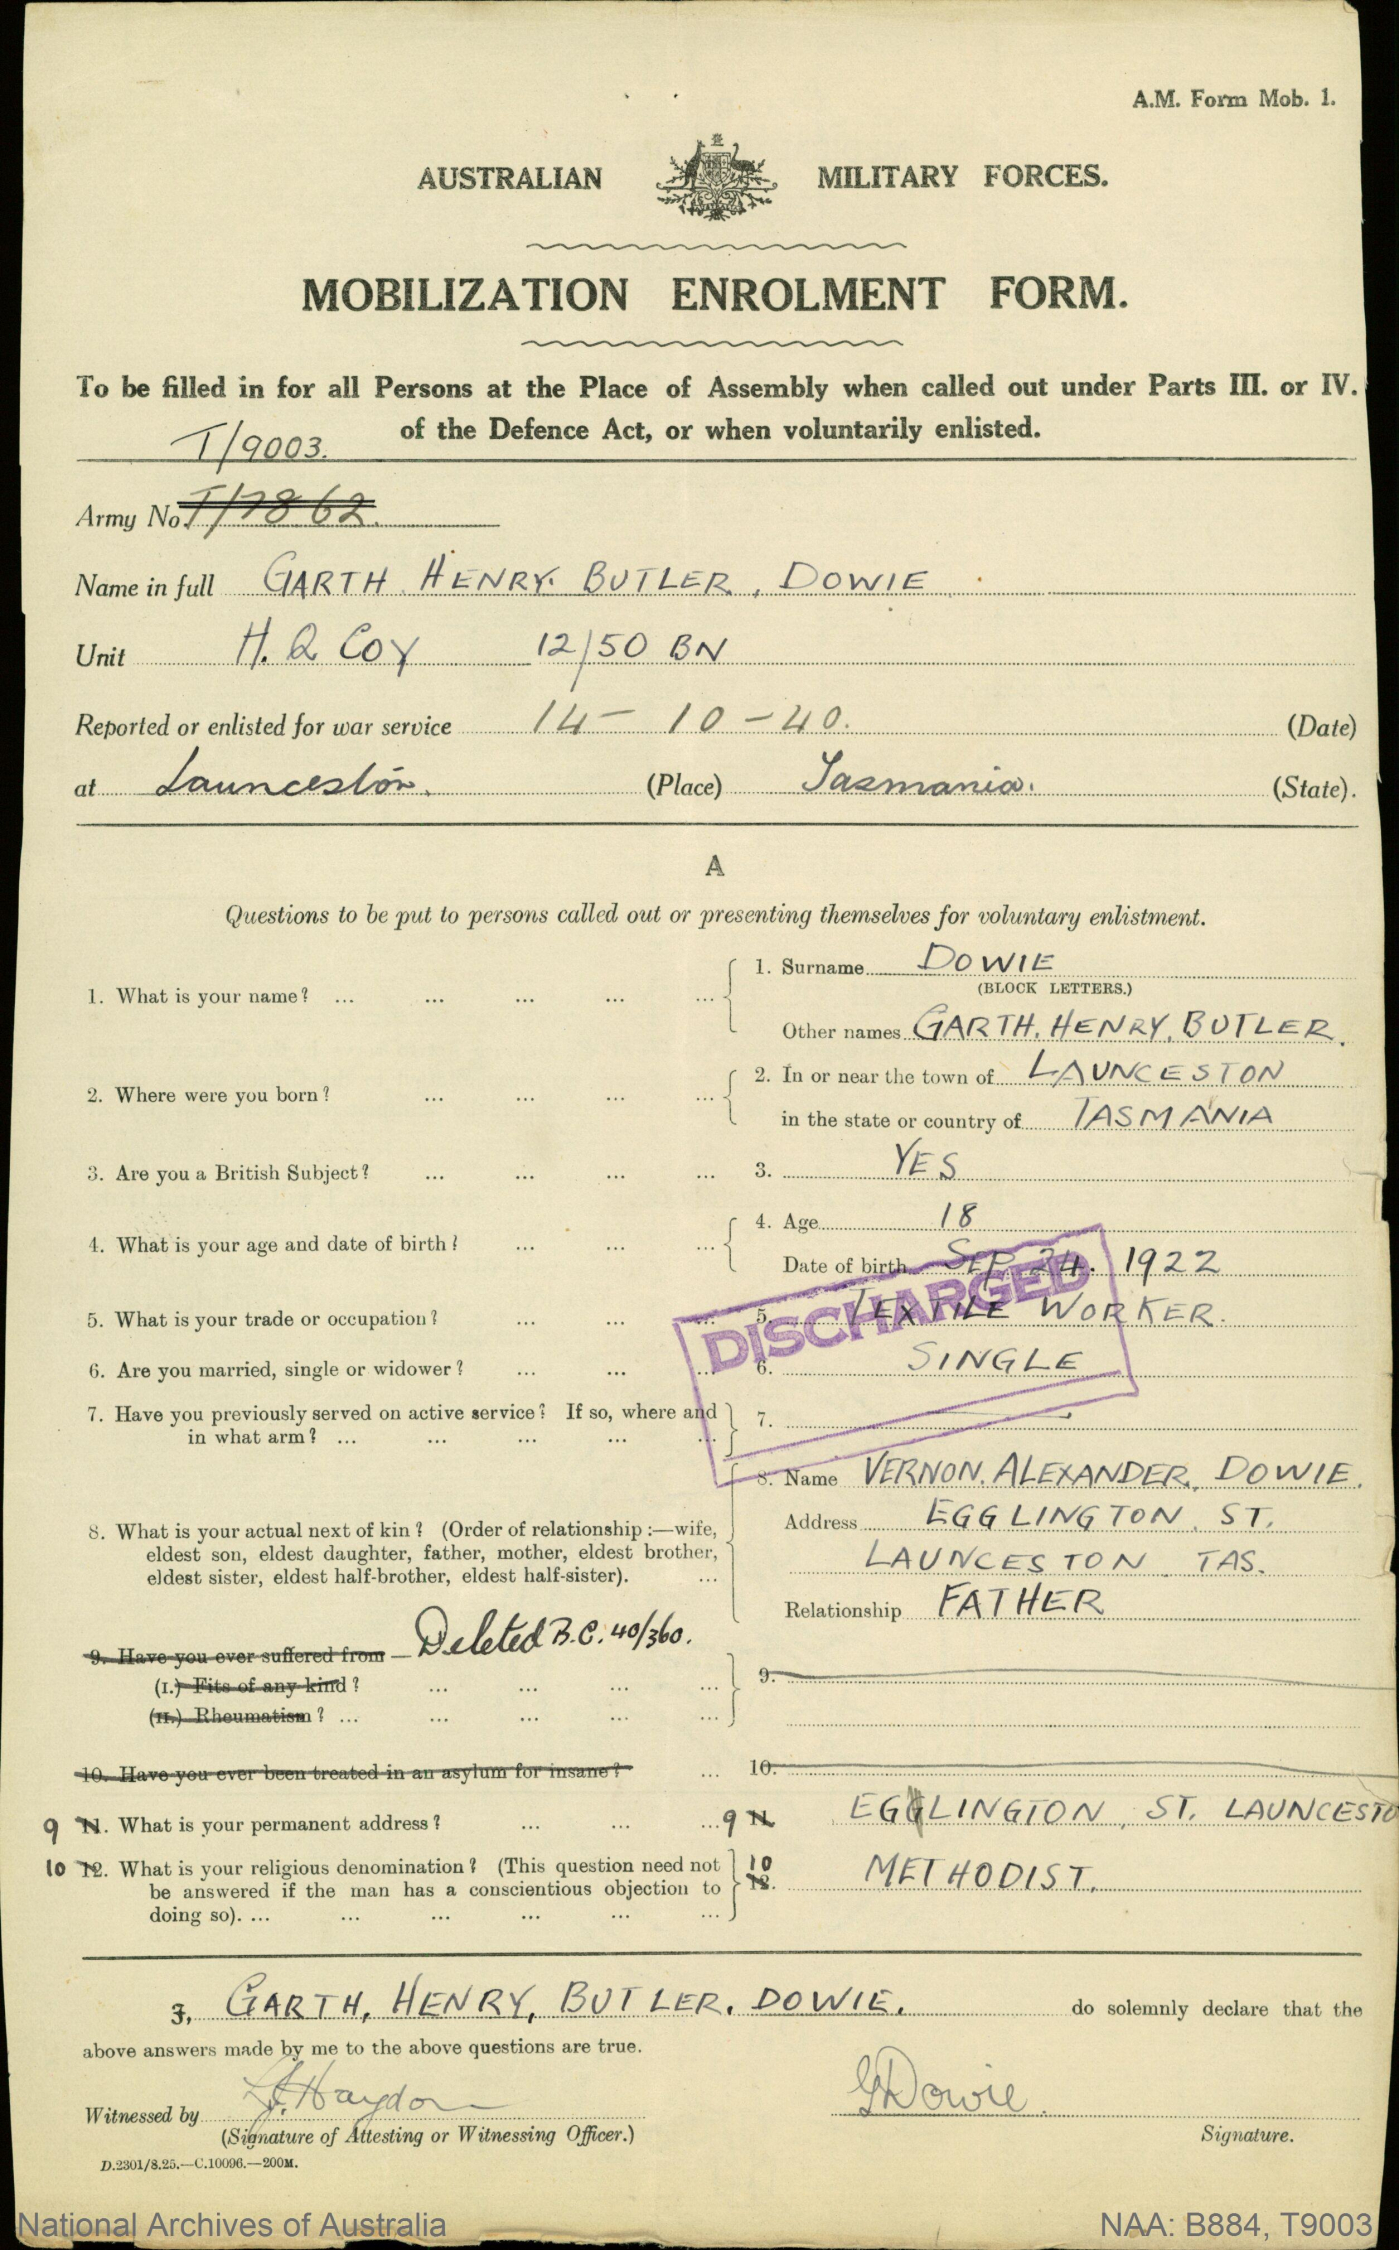 A.M. Form Mob. 1.
AUSTRALIAN MILITARY FORCES.
MOBILIZATION ENROLMENT FORM.
To be filled in for all Persons at the Place of Assembly when called out under Parts III. or IV.
of the Defence Act, or when voluntarily enlisted.
T/9003.
Army No. T/7862.
Name in full GARTH HENRY. BUTLER, DOWIE
Unit H.Q COY 12/50 BN
Reported or enlisted for war service 14 - 10 - 40. (Date)
at Launceston. (Place) Tasmania. (State).
A
Questions to be put to persons called out or presenting themselves for voluntary enlistment.
1. What is your name? ... ... ... ... ... 1. Surname DOWIE
(BLOCK LETTERS.)
Other names GARTH, HENRY, BUTLER.
2. Where were you born? ... ... ... ... 2. In or near the town of LAUNCESTON
in the state or country of TASMANIA
3. Are you a British Subject? ... ... ... ... 3. YES
4. What is your age and date of birth? ... ... ... 4. Age 18
Date of birth SEP 24. 1922
5. What is your trade or occupation? ... ... ... 5. TEXTILE WORKER.
DISCHARGED
6. Are you married, single or widower? ... ... ... 6. SINGLE
7. Have you previously served on active service? If so, where and 7. —
in what arm? ... ... ... ... ...
8. Name VERNON. ALEXANDER. DOWIE.
8. What is your actual next of kin? (Order of relationship :—wife, Address EGGLINGTON. ST.
eldest son, eldest daughter, father, mother, eldest brother, LAUNCESTON. TAS.
eldest sister, eldest half-brother, eldest half-sister). ...
Relationship FATHER
9. Have you ever suffered from — Deleted B.C. 40/360.
(I.) Fits of any kind? ... ... ... ... 9.
(II.) Rheumatism? ... ... ... ... ...
10. Have you ever been treated in an asylum for insane? ... 10.
9 11. What is your permanent address? ... ... ... 9 11. EGGLINGTON, ST. LAUNCESTO
10 12. What is your religious denomination? (This question need not 10 12. METHODIST.
be answered if the man has a conscientious objection to
doing so). ... ... ... ... ... ...
I, GARTH, HENRY, BUTLER. DOWIE. do solemnly declare that the
above answers made by me to the above questions are true.
Witnessed by Haydon GDowie.
(Signature of Attesting or Witnessing Officer.) Signature.
D.2301/8.25.—C.10096.—200M.
National Archives of Australia NAA: B884, T9003